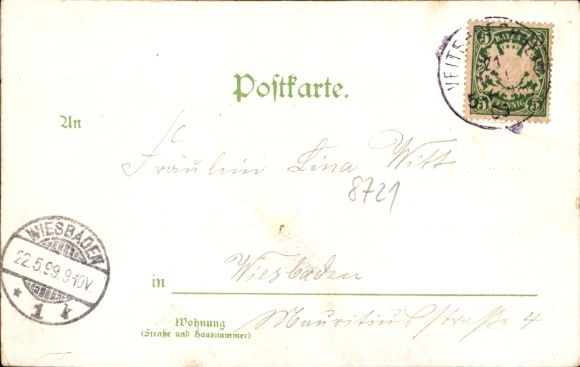 Postkarte.
BAYERN
21
5 PFENNIG 5
An
Fräulein Lina Witt
8729
WIESBADEN
22.5.99.9-10V.
* 1 k
in Wiesbaden
Wohnung Mauritiusstraße 4
(Straße und Hausnummer)